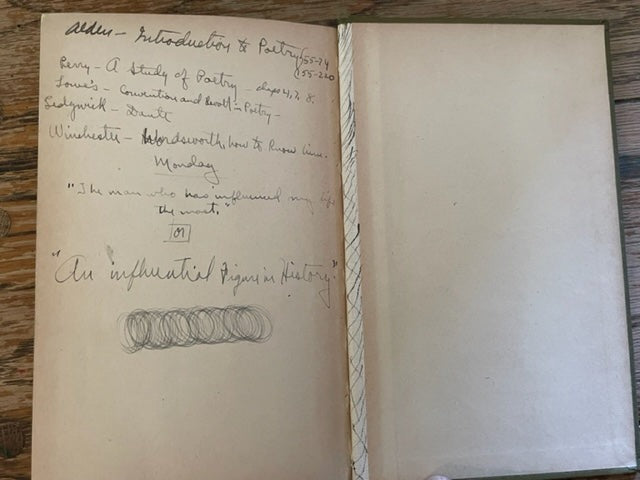 Alden - Introduction to Poetry (55-74
(155-220
Perry - A Study of Poetry - chaps 4, 7, 8.
Lowe's - Convention and Revolt in Poetry -
Sedgwick - Dante
Winchester - Wordsworth, how to Know him.
Monday
"The man who has influenced my life
the most."
or
"An influential Figure in History"